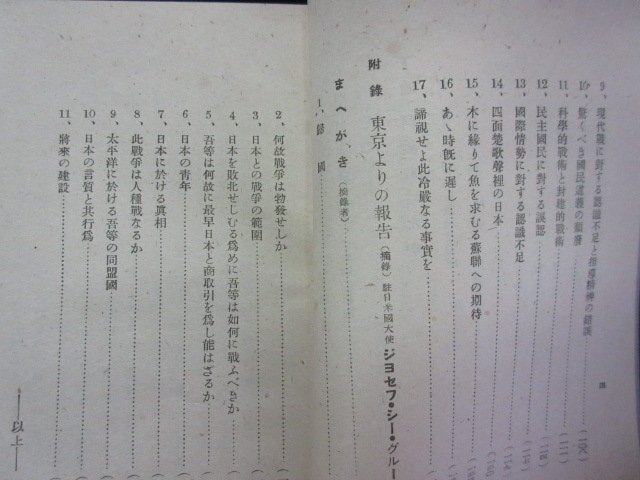 9、現代戰に對する認識不足と指導精神の錯誤
10、驚くべき國民道義の頽廢
11、科學的戰術と封建的戰術
12、民主國民に對する誤認
13、國際情勢に對する認識不足
14、四面楚歌聲裡の日本
15、木に緣りて魚を求むる蘇聯への期待
16、あゝ時旣に遲し
17、諦視せよ此冷嚴なる事實を
附錄 東京よりの報告(摘錄)駐日米國大使ジヨセフ・シー・グルー
まへがき(摘錄者)
1、歸國
2、何故戰爭は勃發せしか
3、日本との戰爭の範圍
4、日本を敗北せしむる爲めに吾等は如何に戰ふべきか
5、吾等は何故に最早日本と商取引を爲し能はざるか
6、日本の靑年
7、日本に於ける眞相
8、此戰爭は人種戰なるか
9、太平洋に於ける吾等の同盟國
10、日本の言質と其行爲
11、將來の建設
――以上――